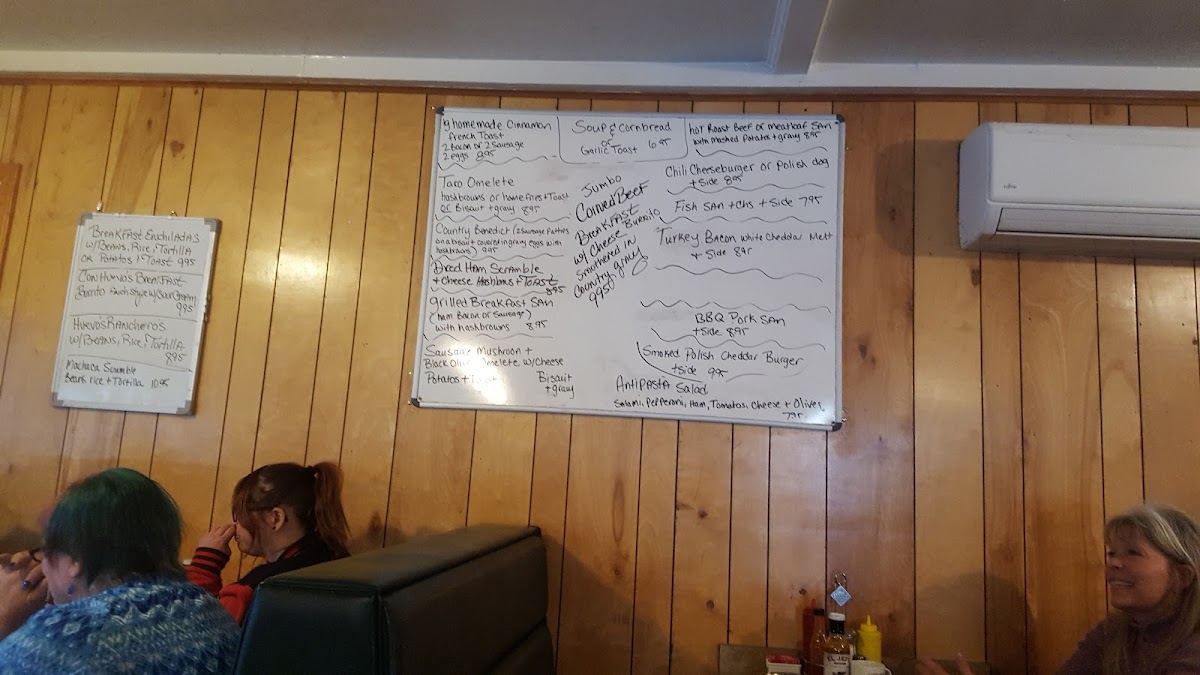 BreakFast Enchilada's
w/Beans, Rice, Tortilla
or Potatoes + Toast 995
Breakfast
Burrito
995
Huevo's Rancheros
w/Beans, Rice, Tortilla
895
Machaca Scramble
Beans rice + Tortilla 1095
homemade Cinnamon
French Toast
2 Bacon or 2 Sausage
2 eggs 895
Taco Omelete
hashbrowns or homefries + Toast
or Biscuit + gravy 895
Country Benedict (2 Sausage Patties
on a biscuit covered in gravy eggs with
hashbrowns) 995
Diced Ham Scramble
+ cheese Hashbrowns + Toast
895
Grilled Breakfast San
(ham Bacon or Sausage)
with hashbrowns 895
Sausage Mushroon +
Black Olive Omelete w/Cheese
Potatos + Toast
Biscuit
+ gravy
Soup & Cornbread
or
Garlic Toast 695
Jumbo
Corned Beef
BreakFast
Burrito
w/ Cheese
Smothered in
Country gravy
995
hot Roast Beef or meatloaf San
with mashed Potatos + gravy 895
Chili Cheeseburger or Polish dog
+ Side 895
Fish San + Chs + Side 795
Turkey Bacon white Cheddar Melt
+ Side 895
BBQ Pork San
+ Side 895
Smoked Polish Cheddar Burger
+ Side 995
Antipasta Salad
Salami, Pepperoni, Ham, Tomatos, Cheese + Olives
795
FUJITSU